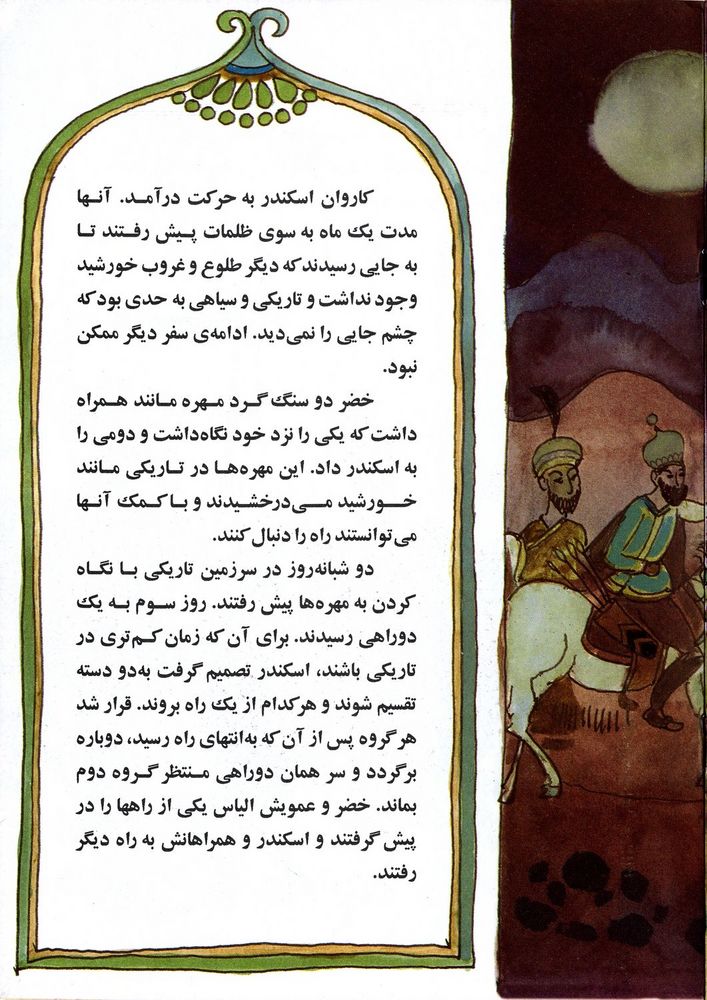 کاروان اسکندر به حرکت درآمد. آنها
مدت یک ماه به سوی ظلمات پیش رفتند تا
به جایی رسیدند که دیگر طلوع و غروب خورشید
وجود نداشت و تاریکی و سیاهی به حدی بود که
چشم جایی را نمی‌دید. ادامه‌ی سفر دیگر ممکن
نبود.
خضر دو سنگ گرد مهره مانند همراه
داشت که یکی را نزد خود نگاه‌داشت و دومی را
به اسکندر داد. این مهره‌ها در تاریکی مانند
خورشید می‌درخشیدند و با کمک آنها
می‌توانستند راه را دنبال کنند.
دو شبانه‌روز در سرزمین تاریکی با نگاه
کردن به مهره‌ها پیش رفتند. روز سوم به یک
دوراهی رسیدند. برای آن که زمان کم‌تری در
تاریکی باشند، اسکندر تصمیم گرفت به‌دو دسته
تقسیم شوند و هرکدام از یک راه بروند. قرار شد
هر گروه پس از آن که به‌انتهای راه رسید، دوباره
برگردد و سر همان دوراهی منتظر گروه دوم
بماند. خضر و عمویش الیاس یکی از راهها را در
پیش گرفتند و اسکندر و همراهانش به راه دیگر
رفتند.